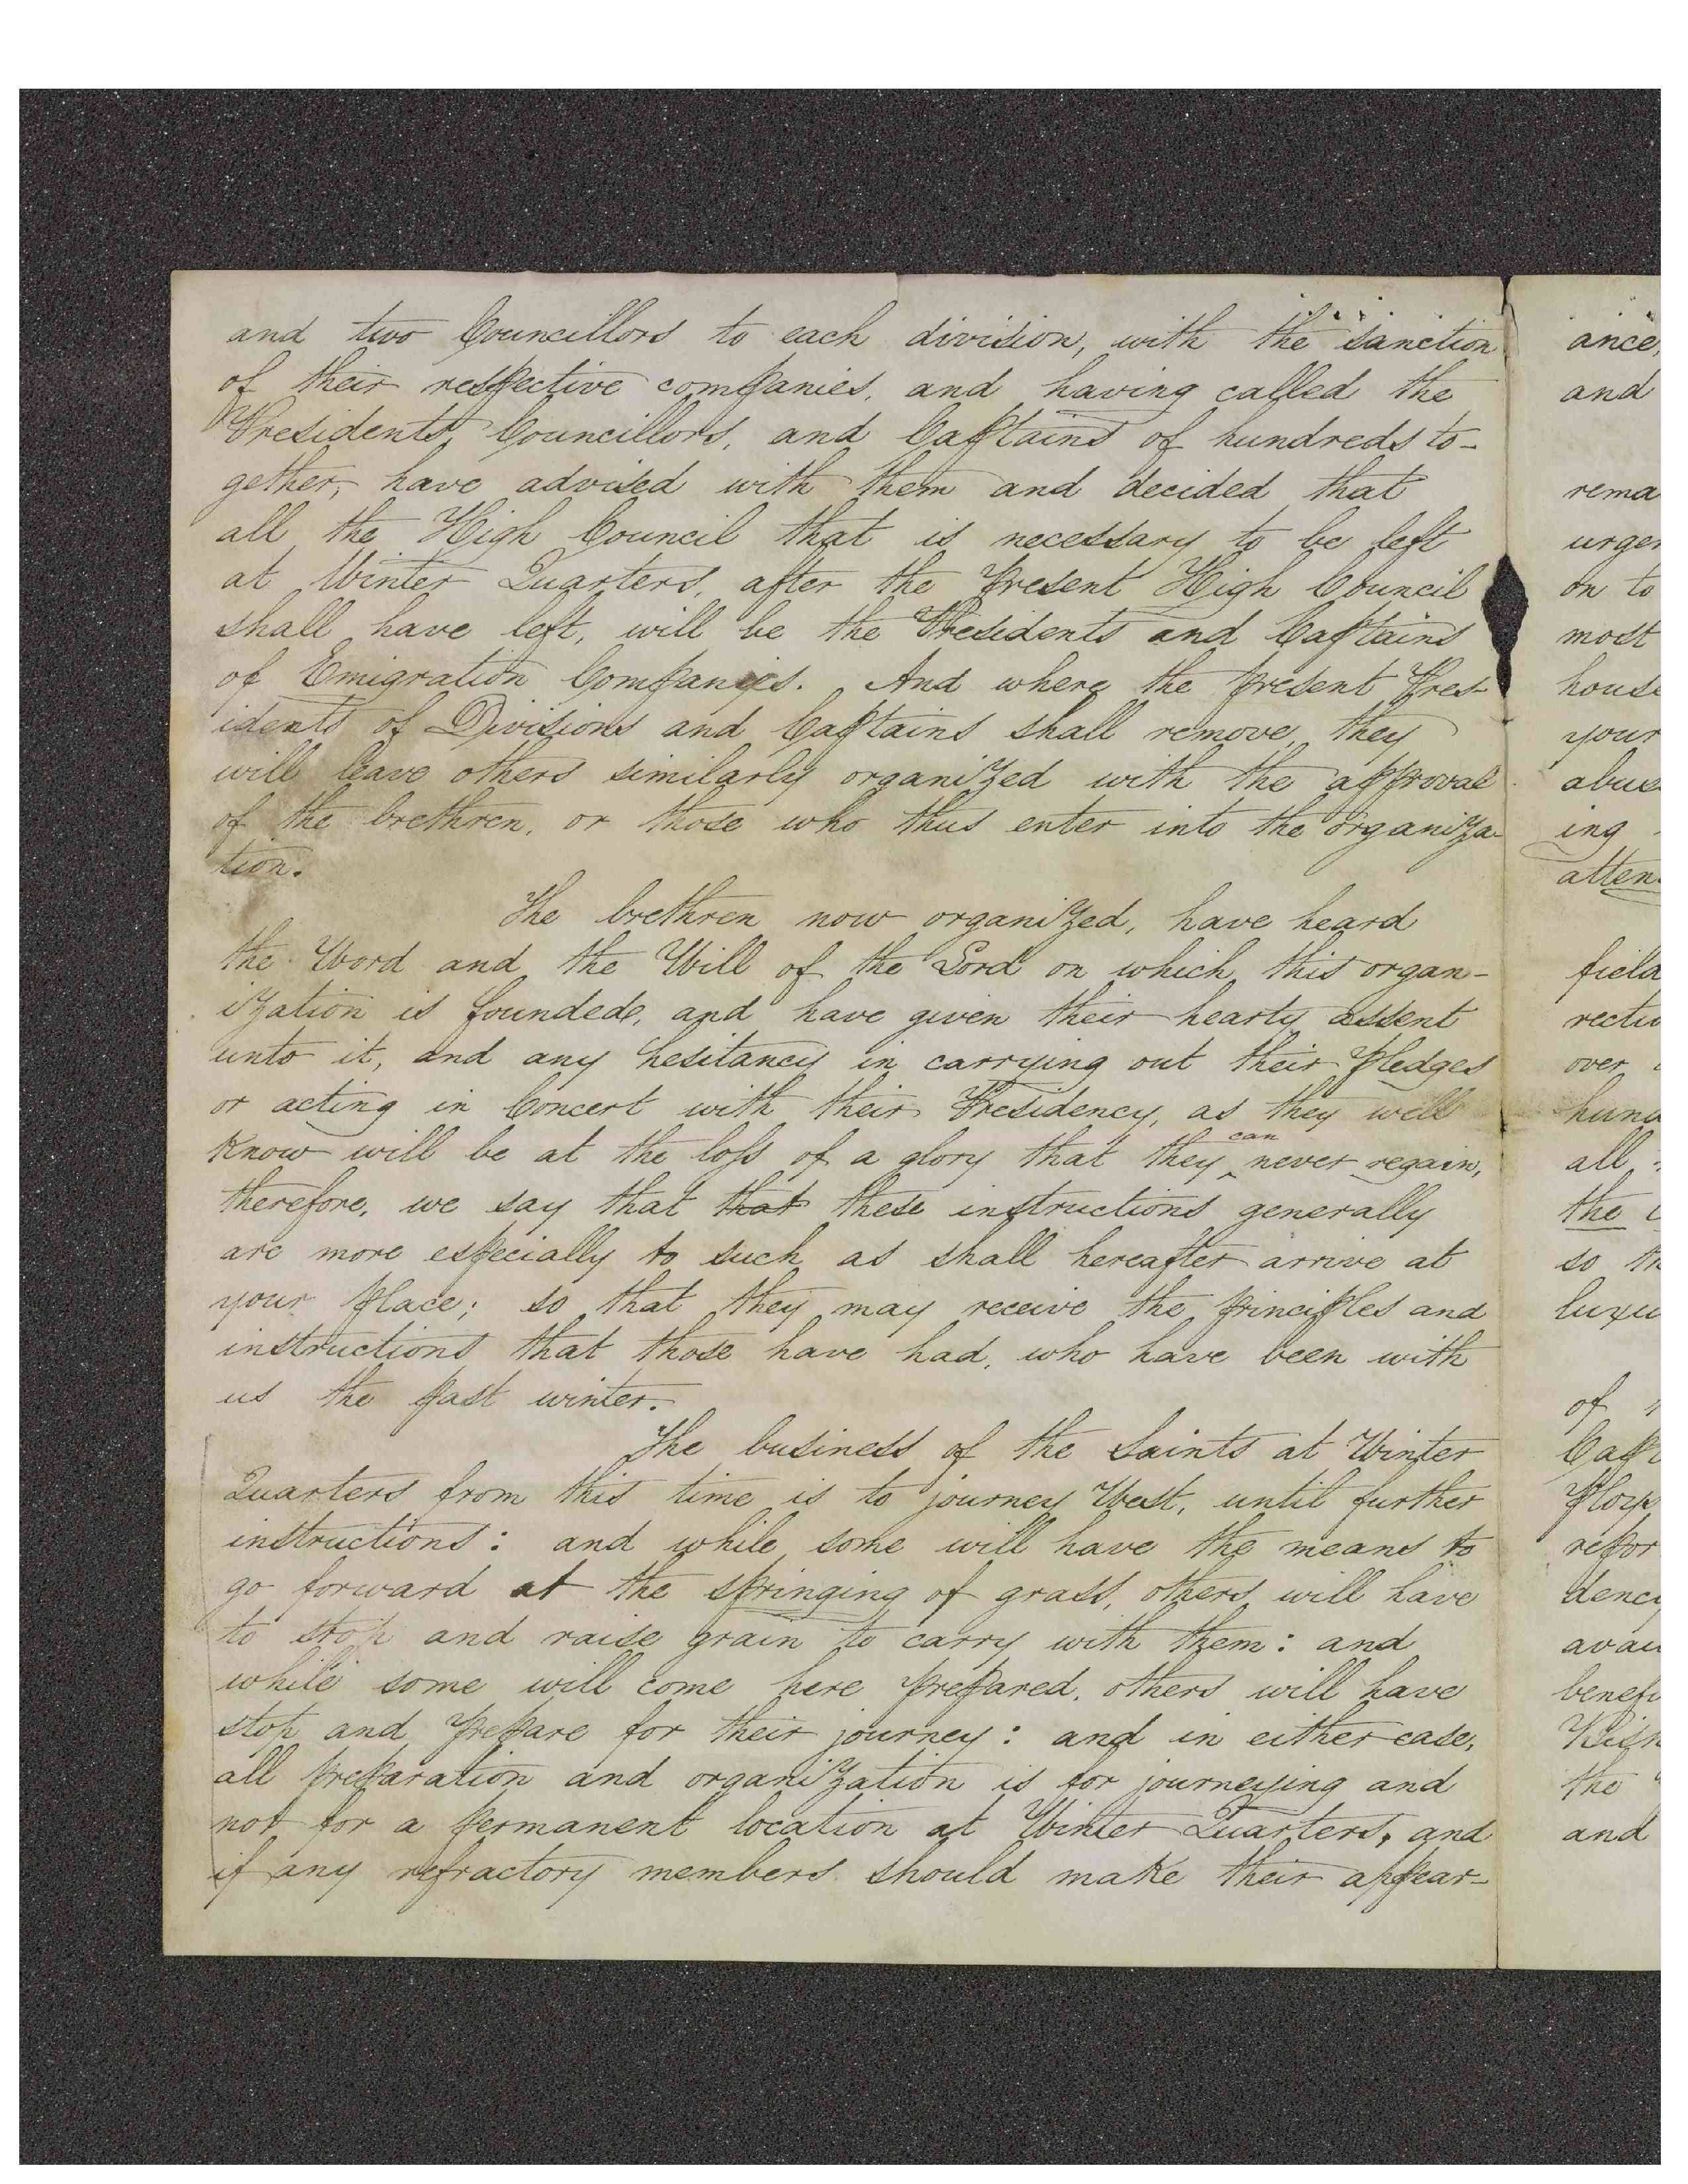 and two Councillors to each division, with the sanction
of their respective companies, and having called the
Presidents, Councillors, and Captains of hundreds to-
gether, have advised with them and decided that
all the High Council that is necessary to be left
at Winter Quarters, after the present High Council
shall have left, will be the Presidents and Captains
of Emigration Companies. And where the present Pres-
idents of Divisions and Captains shall remove, they
will leave others similarly organized with the approval
of the brethren, or those who thus enter into the organiza-
tion.
The brethren now organized, have heard
the Word and the Will of the Lord on which this organ-
ization is founded, and have given their hearty assent
unto it, and any hesitancy in carrying out their pledges
or acting in Concert with their Presidency, as they well
know will be at the loss of a glory that they can never regain,
therefore, we say that that these instructions generally
are more especially to such as shall hereafter arrive at
your place; so that they may receive the principles and
instructions that those have had, who have been with
us the past winter.
The business of the Saints at Winter
Quarters from this time is to journey West, until further
instructions: and while some will have the means to
go forward at the springing of grass, others will have
to stop and raise grain to carry with them: and
while some will come here prepared, others will have
stop and prepare for their journey: and in either case,
all preparation and organization is for journeying and
not for a permanent location at Winter Quarters, and
if any refractory members should make their appear-
ance,
and
rema
urger
on to
most
house
your
abus
ing
atten
field
over
all
the
so th
luxu
of
Capt
repor
dency
avai
benefi
the
and